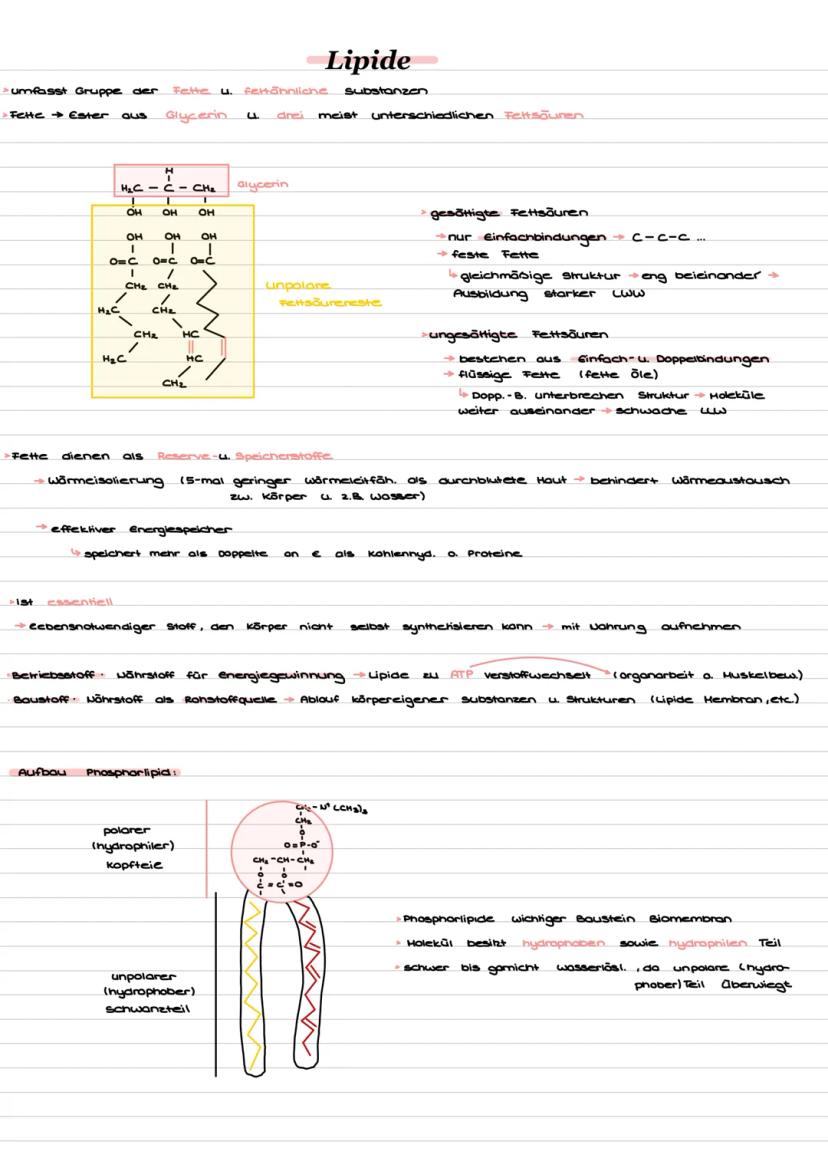 Lipide
> umfasst Gruppe der Fette u. fettähnliche Substanzen
> Fette → Ester aus Glycerin u. drei meist unterschiedlichen Fettsäuren
H
H₂C – C – CH₂ Glycerin
OH OH OH
OH OH OH
O=C O=C O=C
CH₂ CH₂
H₂C CH₂
CH₂ HC
H₂C HC
CH₂
unpolare
Fettsäurereste
> gesättigte Fettsäuren
→ nur Einfachbindungen → C-C-C ...
→ feste Fette
↳ gleichmäßige Struktur → eng beieinander →
Ausbildung starker WW
> ungesättigte Fettsäuren
→ bestehen aus Einfach- u. Doppelbindungen
→ flüssige Fette (fette Öle)
↳ Dopp.-B. unterbrechen Struktur → Moleküle
weiter auseinander → schwache WW
> Fette dienen als Reserve- u. Speicherstoffe
→ Wärmeisolierung (5-mal geringer Wärmeleitfäh. als durchblutete Haut → behindert Wärmeaustausch
zw. Körper u. z.B. Wasser)
→ effektiver Energiespeicher
↳ speichert mehr als Doppelte an E als Kohlenhyd. o. Proteine
> Ist essentiell
→ lebensnotwendiger Stoff, den Körper nicht selbst synthetisieren kann → mit Nahrung aufnehmen
Betriebsstoff · Nährstoff für Energiegewinnung → Lipide zu ATP verstoffwechselt (Organarbeit o. Muskelbew.)
Baustoff · Nährstoff als Rohstoffquelle → Ablauf körpereigener Substanzen u. Strukturen (Lipide Membran, etc.)
Aufbau Phosphorlipid:
polarer
(hydrophiler)
Kopfteie
CH₂ - N⁺ (CH₃)₃
CH₂
O
O=P-O⁻
CH₂ - CH - CH₂
O O
C = C = O
unpolarer
(hydrophober)
Schwanzteil
> Phosphorlipide wichtiger Baustein Biomembran
> Molekül besitzt hydrophoben sowie hydrophilen Teil
> schwer bis garnicht wasserlösl., da unpolare (hydro-
phober) Teil überwiegt